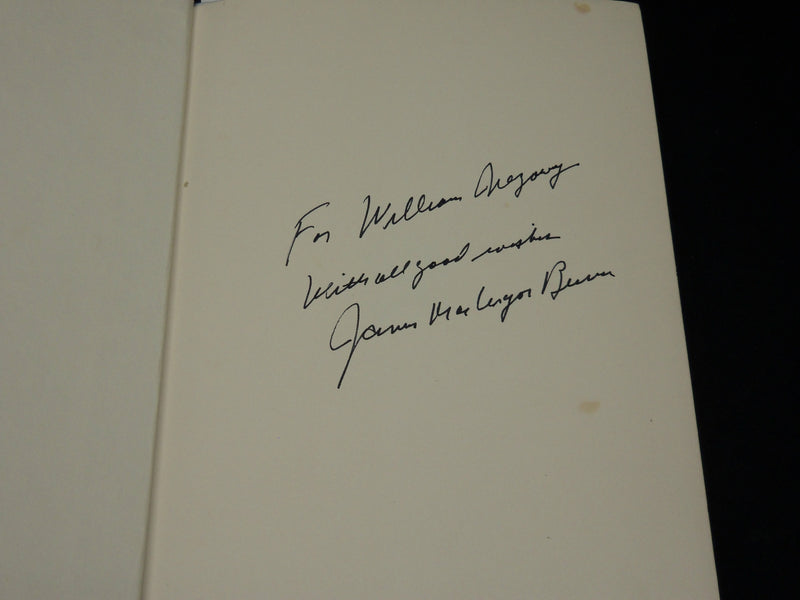 For William Gregory
With all good wishes
James MacGregor Burns